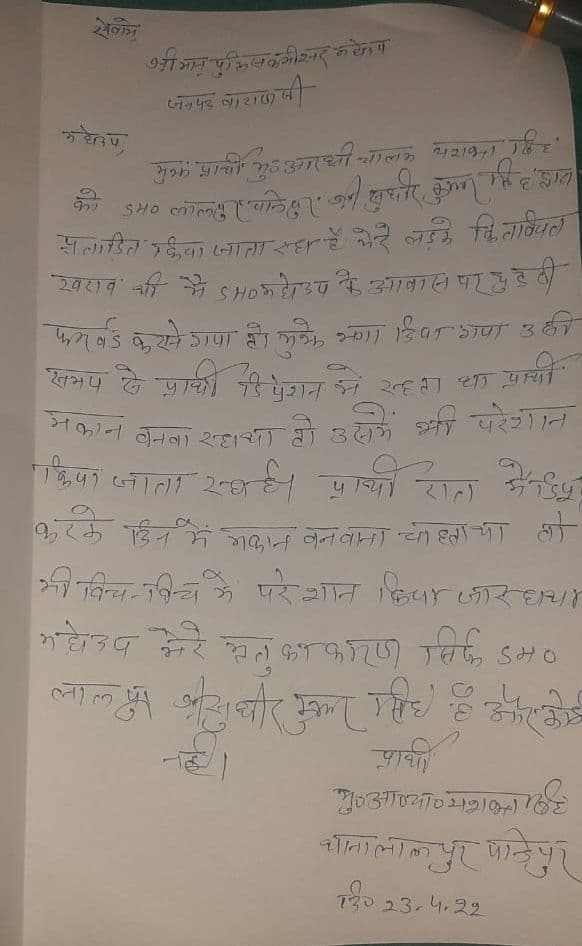 सेवामे,
श्रीमान् पुलिस कमीश्नर महोदय
जनपद वाराणसी
महोदय,
मुझ प्रार्थी मु० आरक्षी चालक यशवन्त सिंह
को SHO लालपुर पाण्डेपुर श्री सुधीर कुमार सिंह द्वारा
प्रताडित किया जाता रहा है मेरे लड़के कि तबियत
खराब थी मै SHO महोदय के आवास पर छुट्टी
फारवर्ड कराने गया तो मुझे भगा दिया गया उसी
समय से प्रार्थी डिप्रेशन मे रहता था प्रार्थी
मकान बनवा रहा था तो उसमें भी परेशान
किया जाता रहा है। प्रार्थी रात में डियू
करके दिन में मकान बनवाना चाहता था तो
भी बिच-बिच मे परेशान किया जा रहा था
महोदय मेरे मृतु का कारण सिर्फ SHO
लालपुर श्री सुधीर कुमार सिंह है और कोई
नही।
प्रार्थी
मु०आ०चा० यशवन्त सिंह
थाना लालपुर पाण्डेपुर
दि० 23.4.22